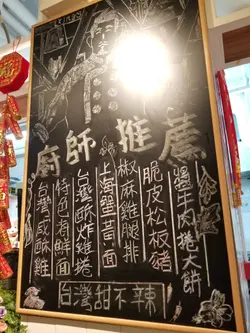 廚師推薦
醬牛肉捲大餅
脆皮松板豬
椒麻雞腿排
上海蟹黃面
台灣酥炸雞捲
特色海鮮面
台灣咸酥雞
台灣甜不辣